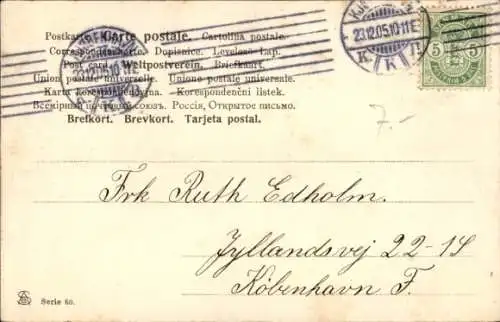 Postkarte. Carte postale. Cartolina postale.
Correspondenzkarte. Dopisnice. Levelező Lap.
Post card. Weltpostverein. Briefkaart.
Union postale universelle. Unione postale universale.
Karta korespondencyjna. Korespondenční listek.
Всемірный почтовый союзъ. Россія, Открытое письмо.
Brefkort. Brevkort. Tarjeta postal.
23.12.05.10-11E
K.
5 5
7.-
Frk Ruth Edholm.
Jyllandsvej 22-1S
København F.
Serie 60.